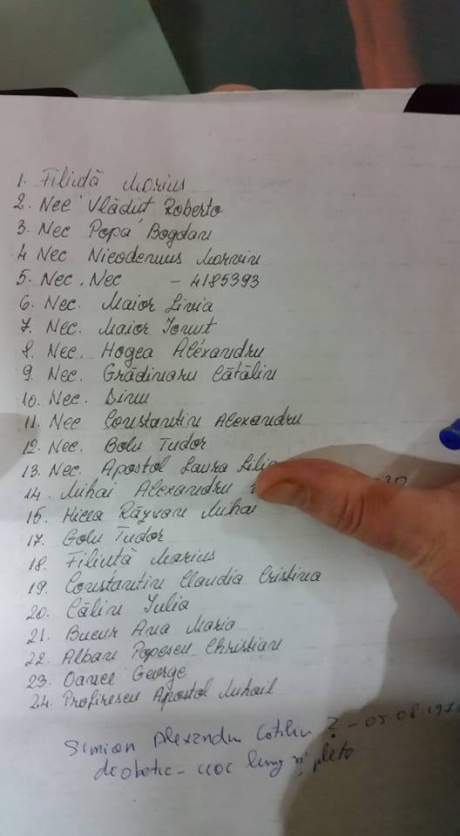 1. Filiută Marius
2. Nec Vlăduț Roberto
3. Nec Popa Bogdan
4 Nec Nicodemus
5. Nec. Nec - 4185393
6. Nec. Maior Livia
7. Nec. Maior Ionuț
8. Nec. Hogea Alexandru
9. Nec. Grădinaru Cătălin
10. Nec. Dinu
11. Nec Constantin Alexandru
12. Nec. Golu Tudor
13. Nec. Apostol Laura Lilia
14. Mihai Alexandru
15. Răzvan Mihai
17. Golu Tudor
18. Filiută Marius
19. Constantin Claudia Cristina
20. Călin Iulia
21. Bucur Ana Maria
22. Alban Popescu Christian
23. Daniel George
24. Profirescu Apostol Mihail
Simion Alexandru ? - 05.08.